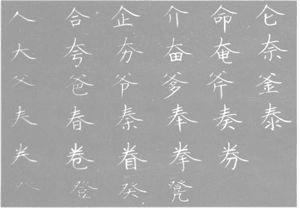 人 合 企 介 命 仑
大 夸 夯 奋 奄 奈
父 爸 爷 爹 斧 釜
𡗗 春 秦 奉 奏 泰
龹 卷 眷 拳 券
癶 登 癸 凳